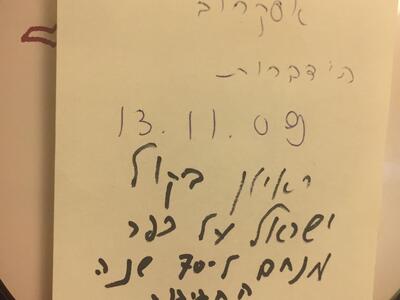 הידברות
13.11.09
ראיון בקול
ישראל על כפר
מנחם ל-70 שנה